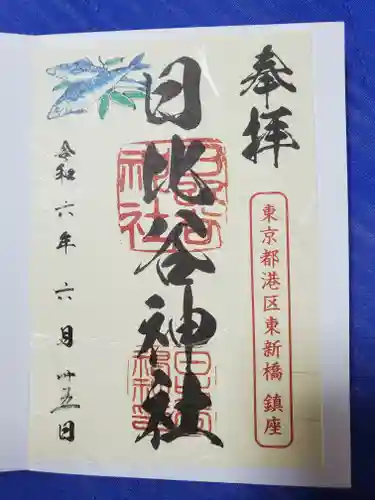 奉拝
東京都港区東新橋 鎮座
日比谷神社
令和六年六月廾五日